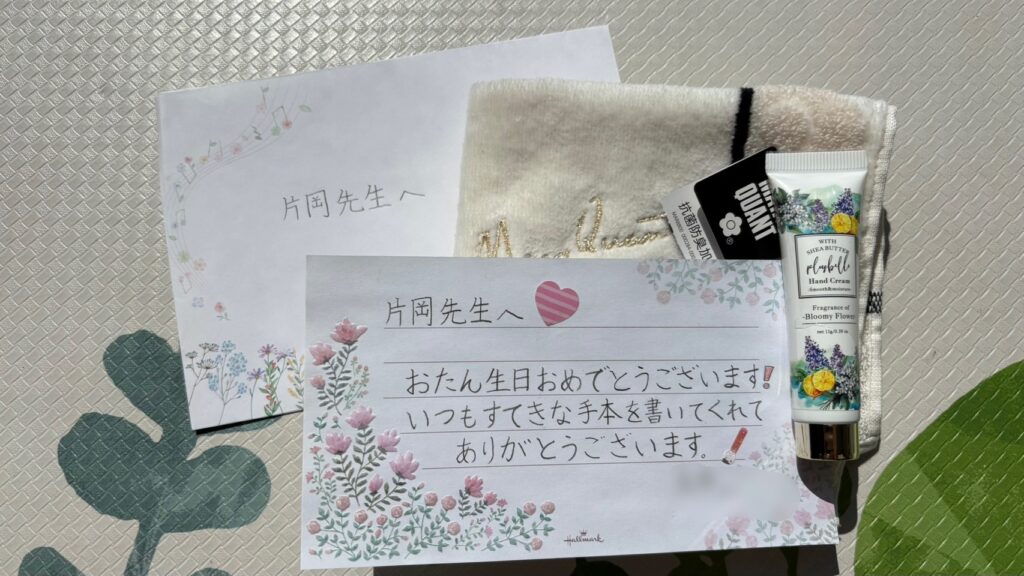 片岡先生へ
QUANT
抗菌防臭加
WITH
SHEA BUTTER
playbill
Hand Cream
Smooth&moisture
Fragrance of
-Bloomy Flower
片岡先生へ
おたん生日おめでとうございます!
いつもすてきな手本を書いてくれて
ありがとうございます。
Hallmark